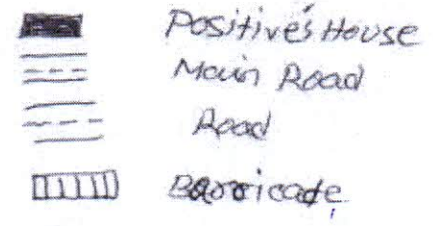 Positive's House
Main Road
Road
Barricade